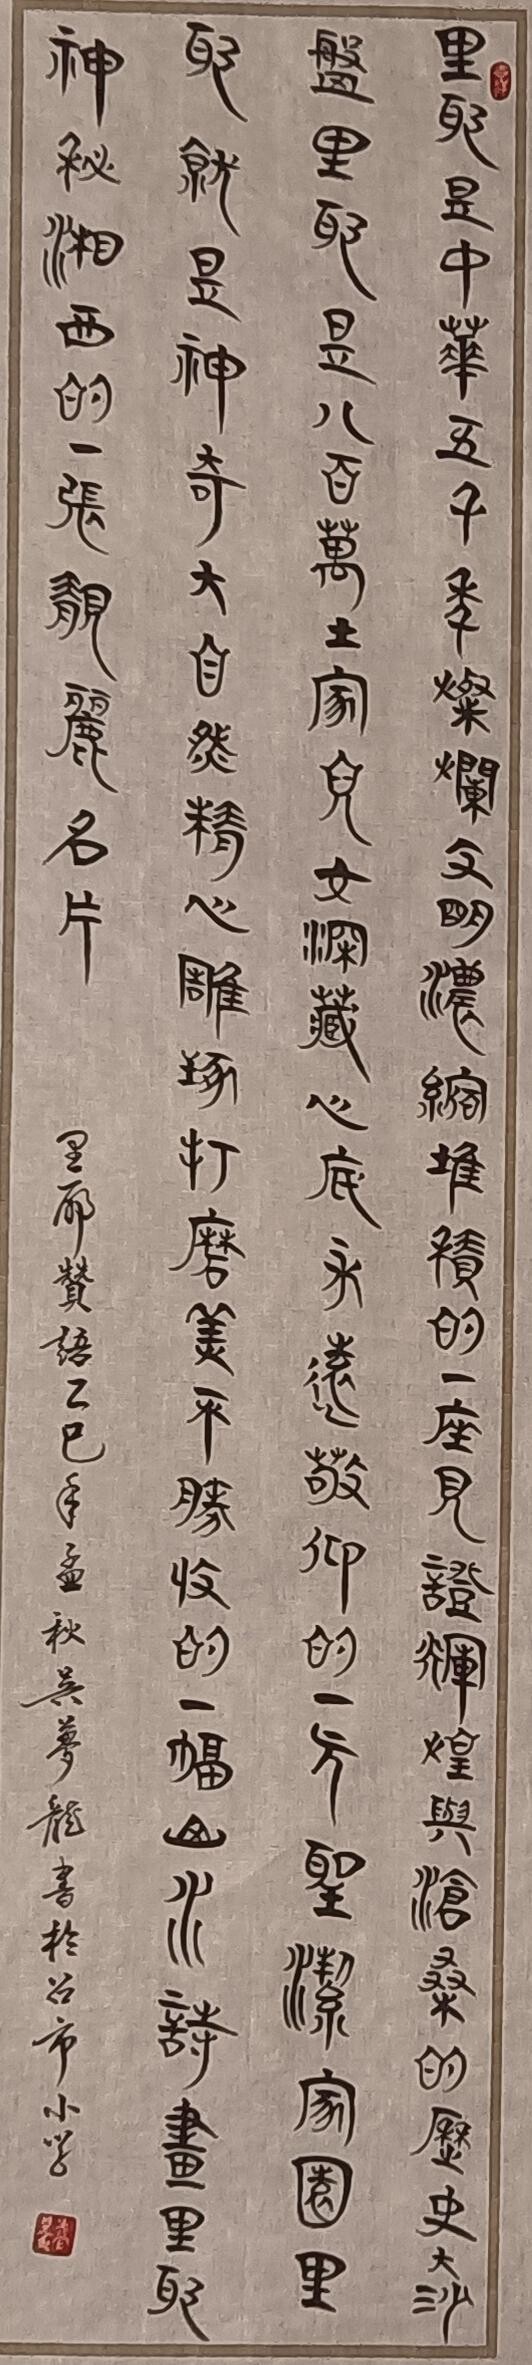 里耶是中華五千年燦爛文明濃縮堆積的一座見證輝煌與滄桑的歷史大沙
盤里耶是八百萬土家兒女深藏心底永遠敬仰的一方聖潔家園里
耶就是神奇大自然精心雕琢打磨美不勝收的一幅山水詩畫里耶
神秘湘西的一張靚麗名片
里耶贊語乙巳年孟秋吳夢龍書於呂市小學